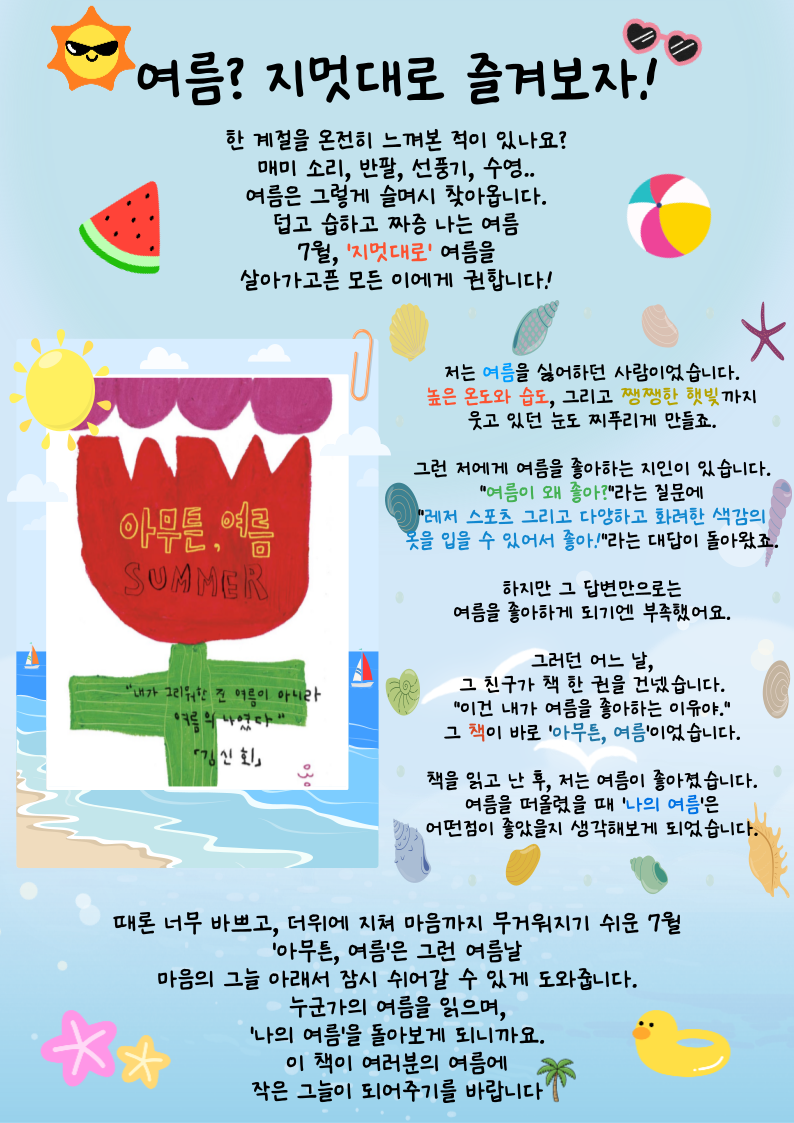 여름? 지멋대로 즐겨보자!
한 계절을 온전히 느껴본 적이 있나요?
매미 소리, 반팔, 선풍기, 수영..
여름은 그렇게 슬며시 찾아옵니다.
덥고 습하고 짜증 나는 여름
7월, '지멋대로' 여름을
살아가고픈 모든 이에게 권합니다!
아무튼, 여름
SUMMER
"내가 그리워한 건 여름이 아니라
여름의 나였다"
「김신회」
저는 여름을 싫어하던 사람이었습니다.
높은 온도와 습도, 그리고 쨍쨍한 햇빛까지
웃고 있던 눈도 찌푸리게 만들죠.
그런 저에게 여름을 좋아하는 지인이 있습니다.
"여름이 왜 좋아?"라는 질문에
"레저 스포츠 그리고 다양하고 화려한 색감의
옷을 입을 수 있어서 좋아!"라는 대답이 돌아왔죠.
하지만 그 답변만으로는
여름을 좋아하게 되기엔 부족했어요.
그러던 어느 날,
그 친구가 책 한 권을 건넸습니다.
"이건 내가 여름을 좋아하는 이유야."
그 책이 바로 '아무튼, 여름'이었습니다.
책을 읽고 난 후, 저는 여름이 좋아졌습니다.
여름을 떠올렸을 때 '나의 여름'은
어떤점이 좋았을지 생각해보게 되었습니다.
때론 너무 바쁘고, 더위에 지쳐 마음까지 무거워지기 쉬운 7월
'아무튼, 여름'은 그런 여름날
마음의 그늘 아래서 잠시 쉬어갈 수 있게 도와줍니다.
누군가의 여름을 읽으며,
'나의 여름'을 돌아보게 되니까요.
이 책이 여러분의 여름에
작은 그늘이 되어주기를 바랍니다